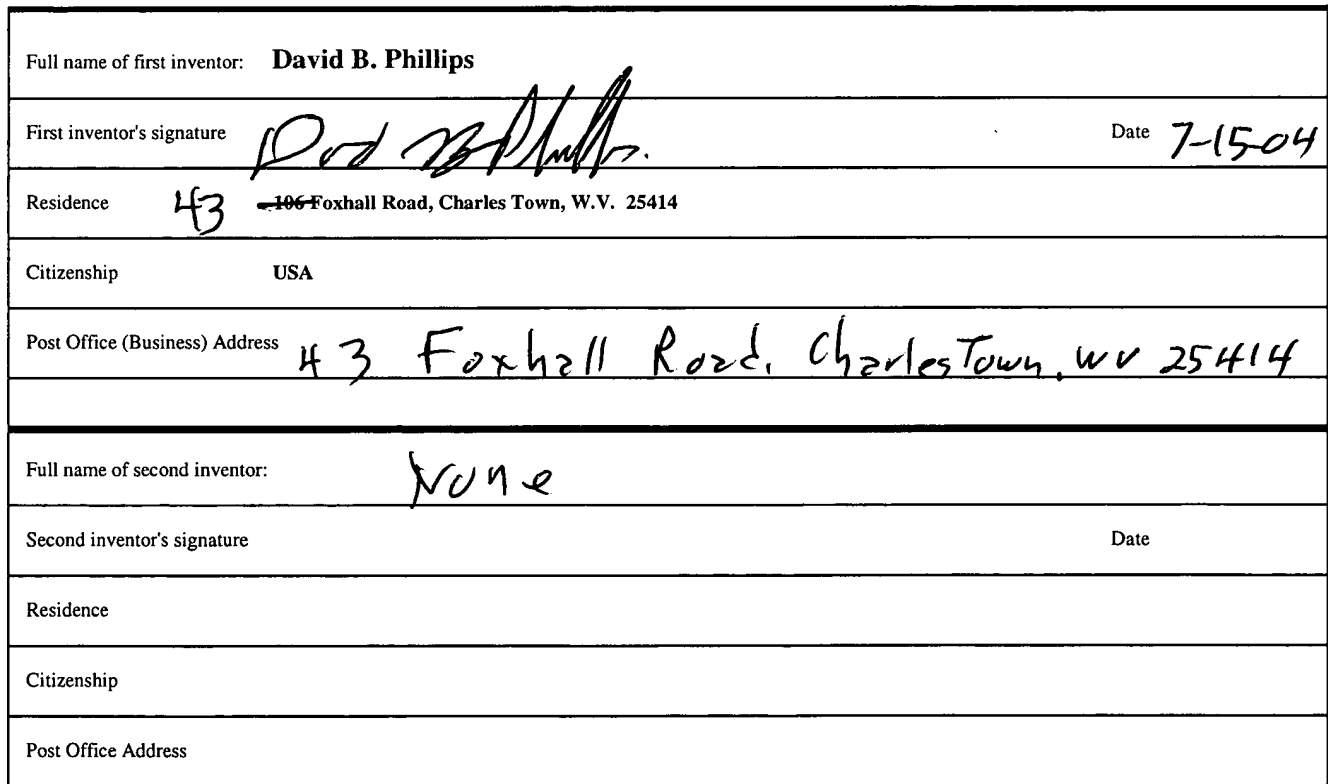 Full name of first inventor: David B. Phillips
First inventor's signature David B Phillips Date 7-15-04
Residence 43 106 Foxhall Road, Charles Town, W.V. 25414
Citizenship USA
Post Office (Business) Address 43 Foxhall Road, Charles Town, WV 25414
Full name of second inventor: None
Second inventor's signature Date
Residence
Citizenship
Post Office Address